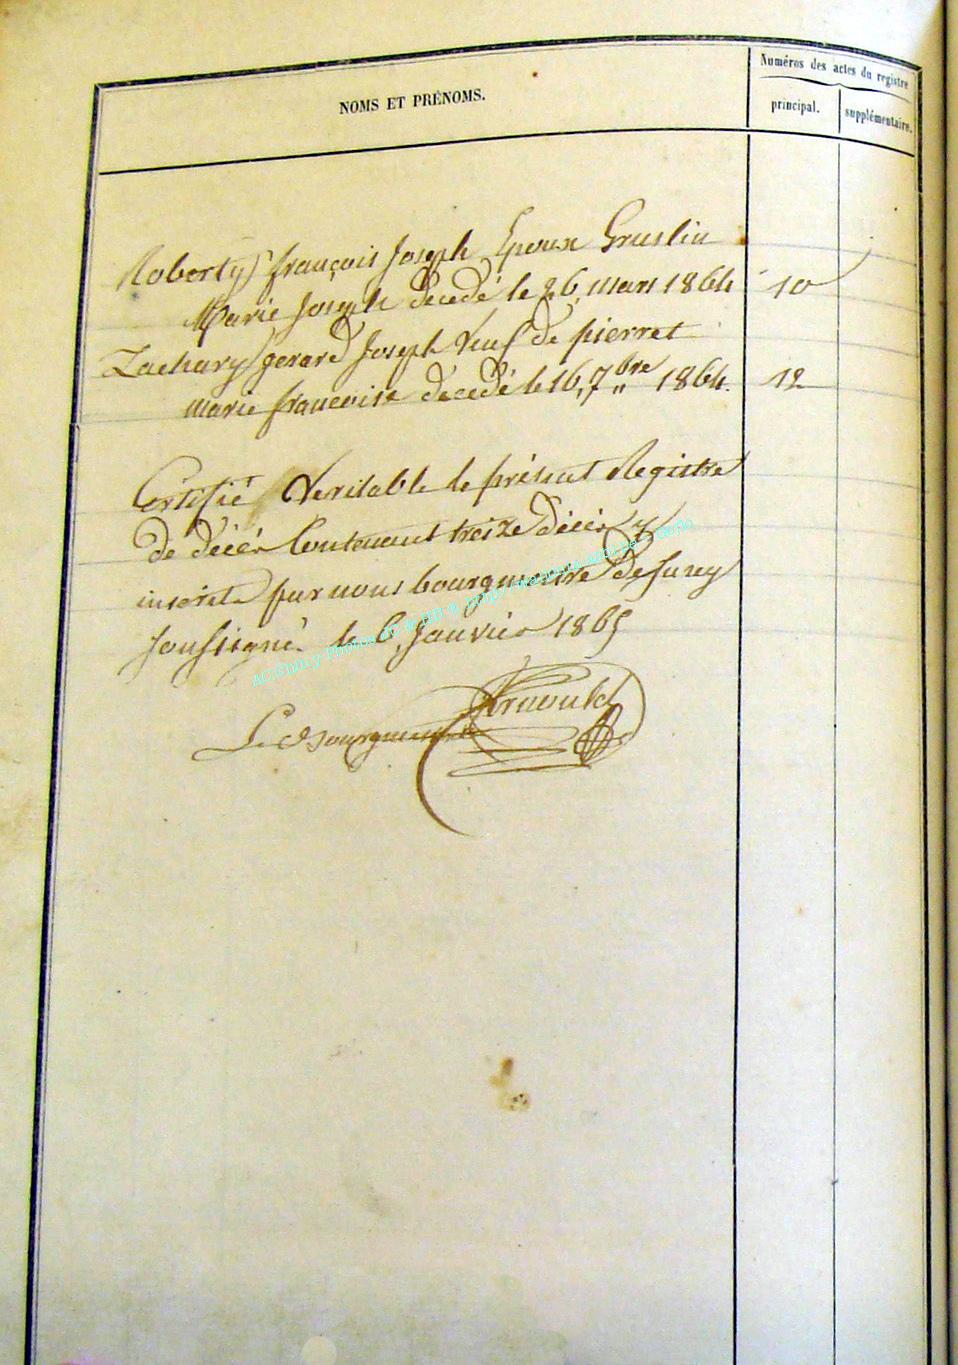 NOMS ET PRÉNOMS.
Numéros des actes du registre
principal.
supplémentaire.
Roberty françois Joseph Epoux Gruslin
Marie Joseph décedé le 26, mars 1864 10
Zachary gerard Joseph Veuf de pierret
marie francoise décedé le 16, 7bre 1864. 12
Certifié Veritable le présent Registre
de décès Contenant treize décès y
inscrits par nous bourgmestre de furcy
soussigné. le 6, Janvier 1865
Le Bourgmestre
Arnould